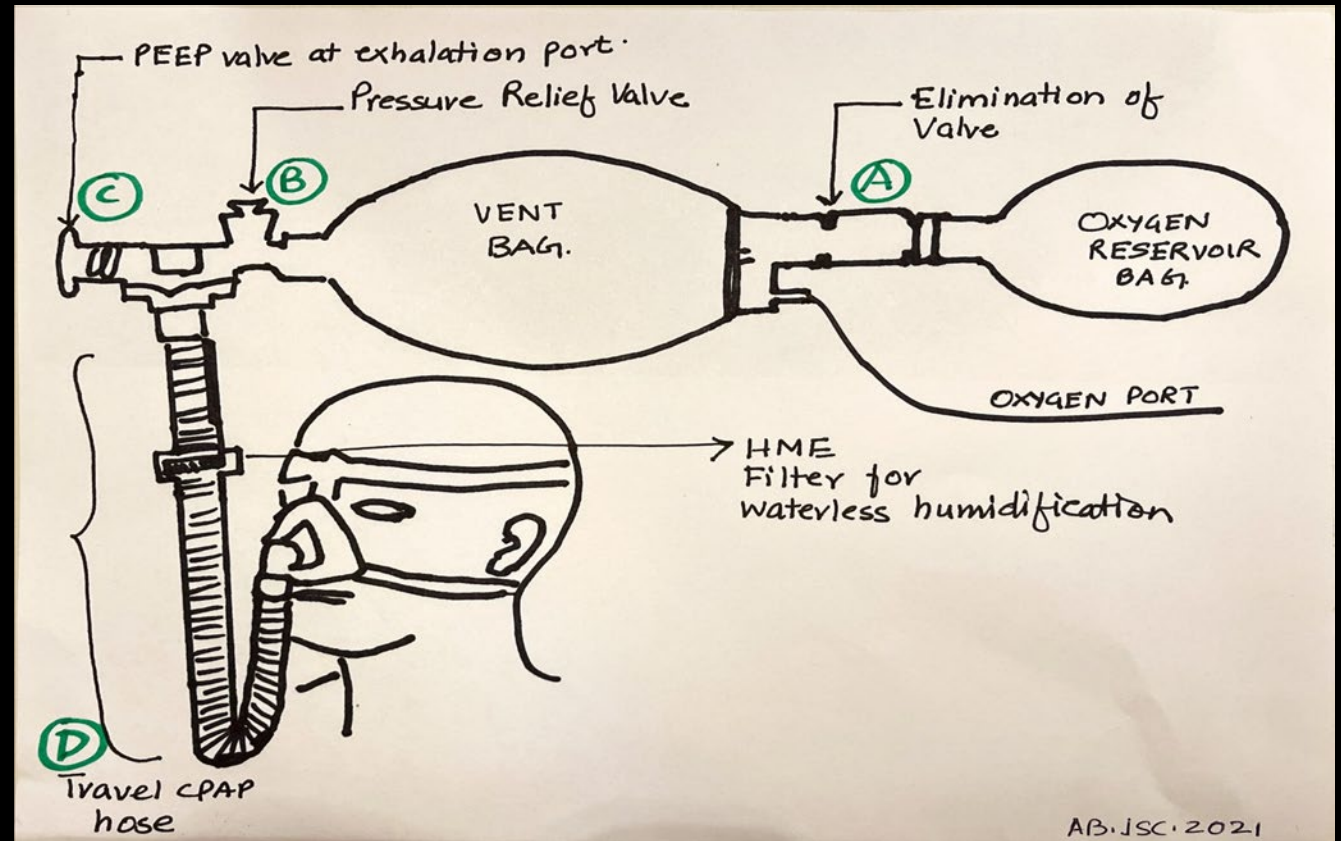 PEEP valve at exhalation port.
Pressure Relief Valve
Elimination of
Valve
C
B
A
VENT
BAG.
OXYGEN
RESERVOIR
BAG.
OXYGEN PORT
HME
Filter for
waterless humidification
D
Travel CPAP
hose
AB.JSC.2021